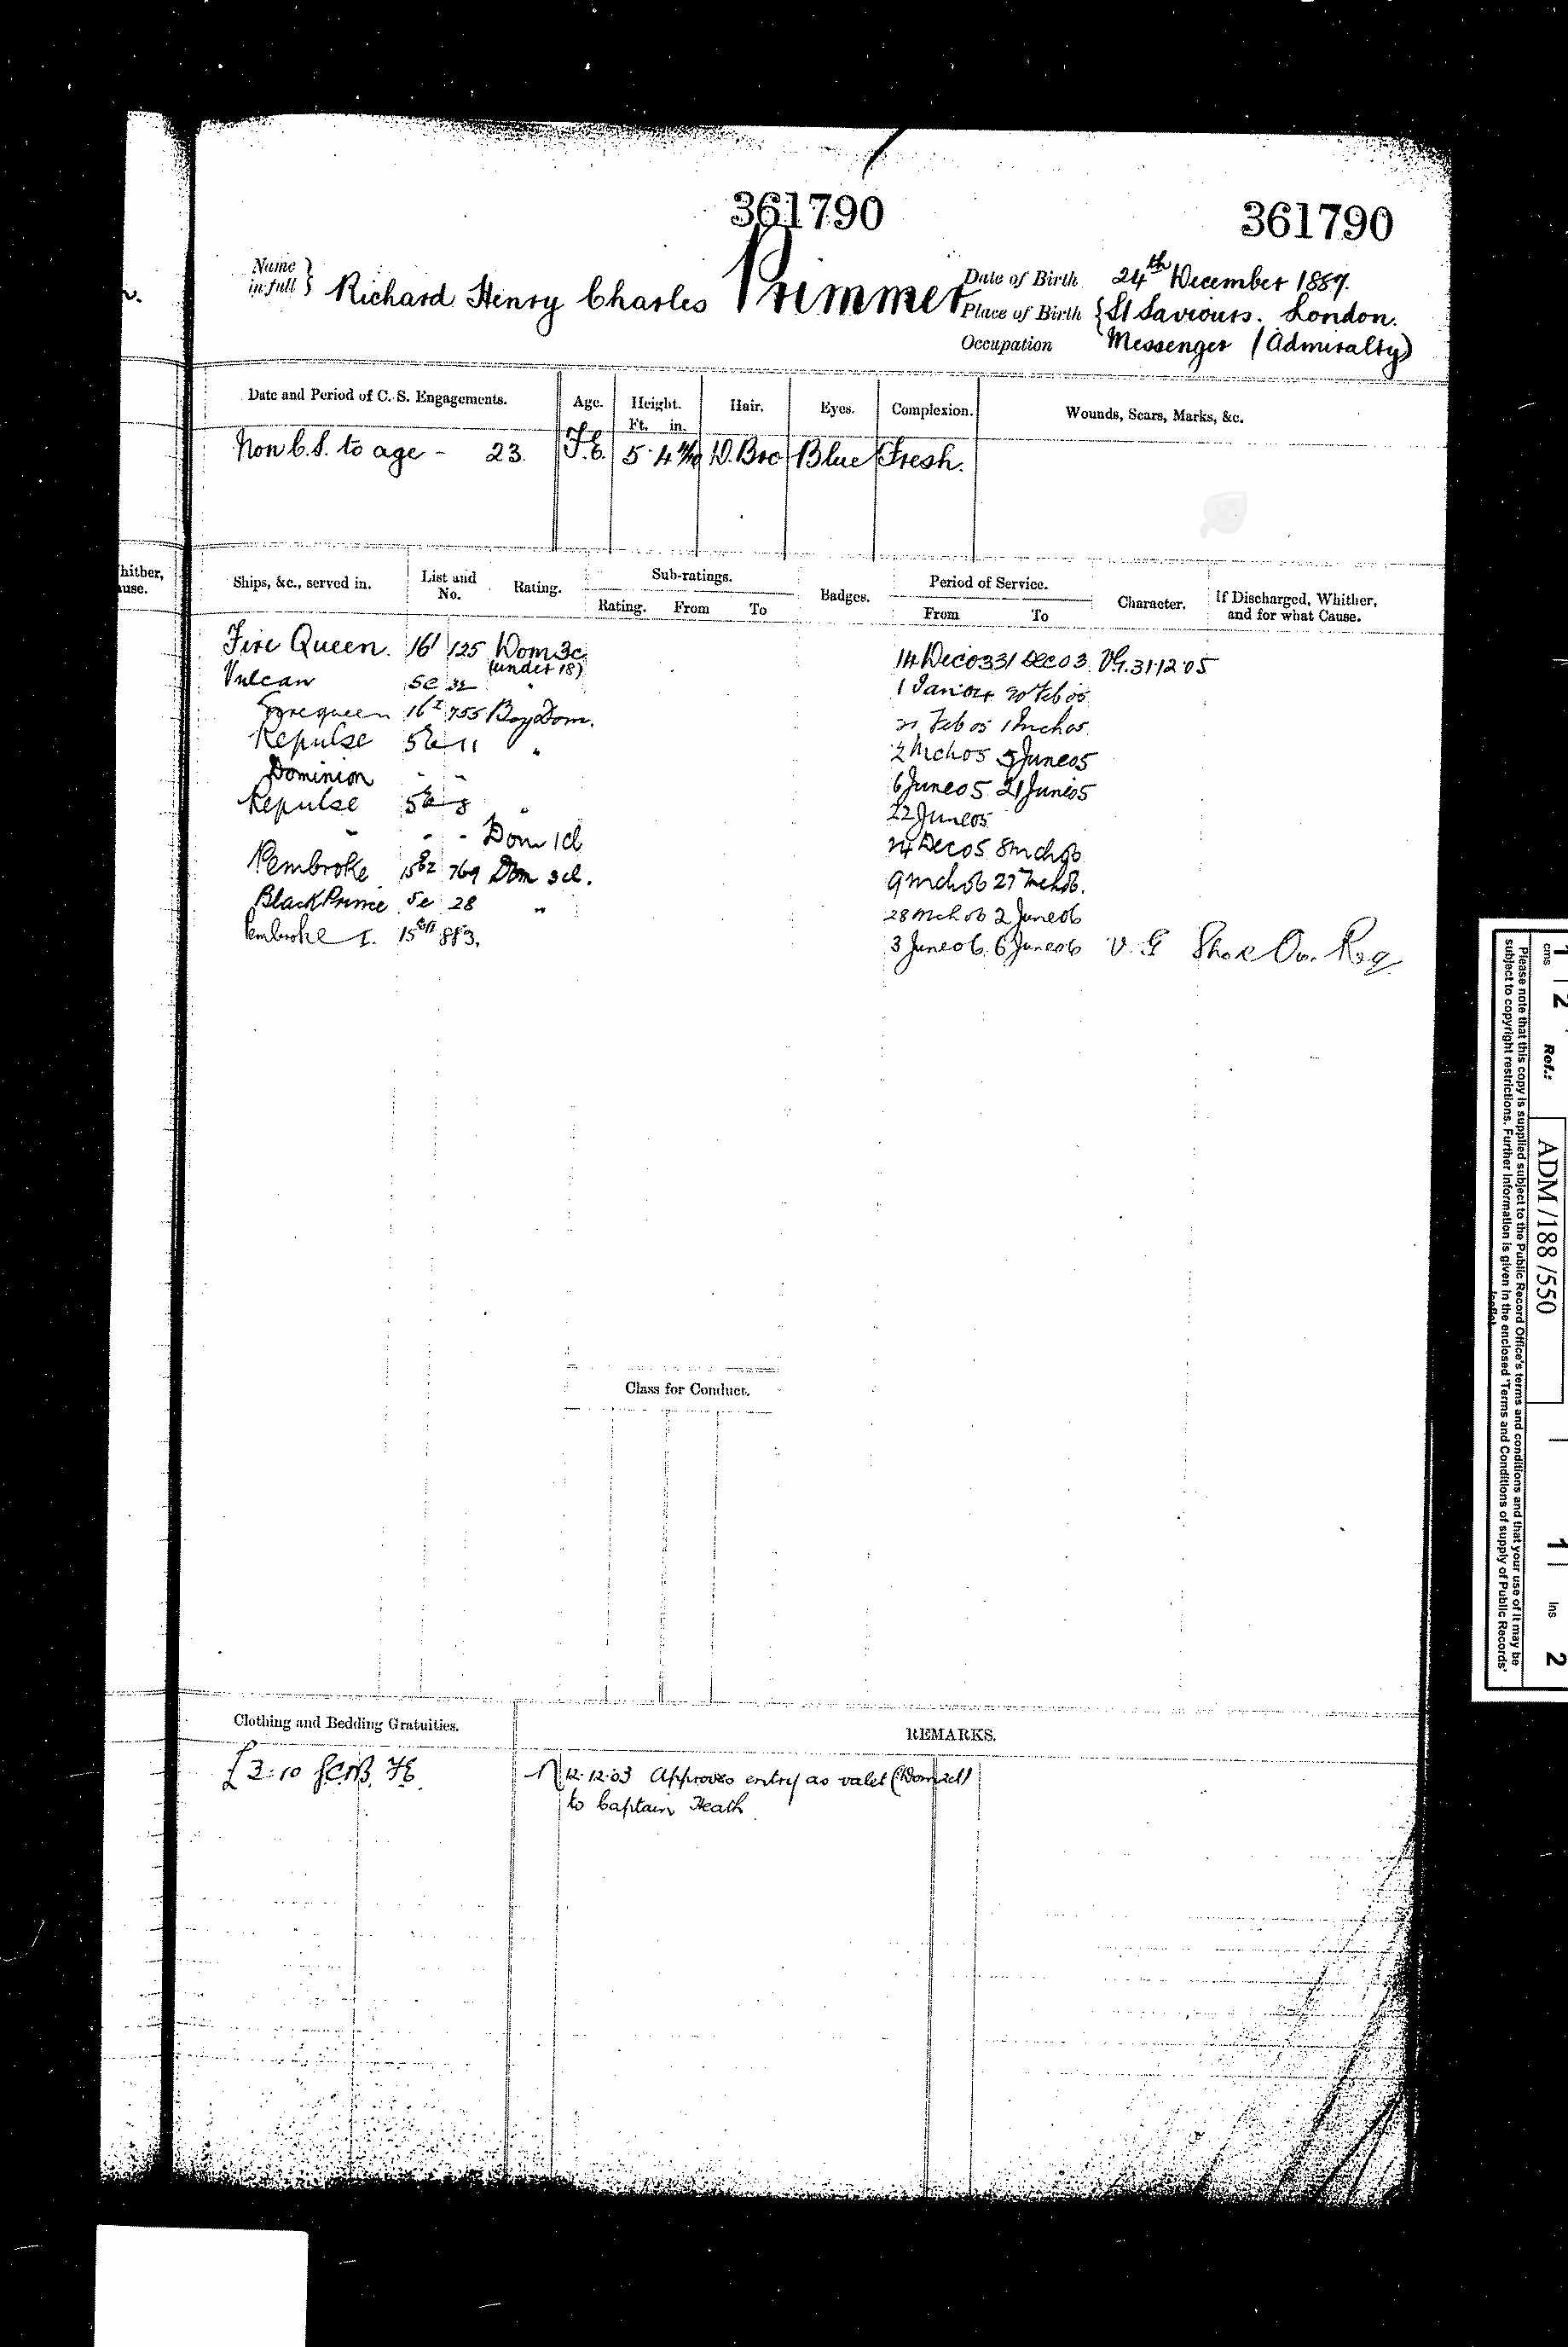 361790 361790
Name in full } Richard Henry Charles Primmer
Date of Birth 24th December 1887.
Place of Birth { St Saviours. London.
Occupation Messenger (Admiralty)
Date and Period of C. S. Engagements. Age. Height. Ft. in. Hair. Eyes. Complexion. Wounds, Scars, Marks, &c.
Non C.S. to age - 23. F.E. 5. 4 D. Bro Blue Fresh.
hither,
use.
Ships, &c., served in. List and No. Rating. Sub-ratings. Rating. From To Badges. Period of Service. From To Character. If Discharged, Whither, and for what Cause.
Fire Queen. 16I 125 Dom 3c 14 Dec 03 31 Dec 03 VG. 31.12.05
(under 18)
Vulcan 5c 32 " 1 Jan 04 20 Feb 05
Firequeen 16I 755 Boy Dom. 21 Feb 05 1 Mch 05
Repulse 5a 11 " 2 Mch 05 5 June 05
Dominion - - 6 June 05 21 June 05
Repulse 5a 8 " 22 June 05
" - - Dom 1cl 24 Dec 05 8 Mch 06
Pembroke 769 Dom 3cl. 9 Mch 06 27 Mch 06.
Black Prince 5c 28 " 28 Mch 06 2 June 06
Pembroke I. 883. 3 June 06 6 June 06 V. G Shore Ow. Req
Class for Conduct.
Clothing and Bedding Gratuities. REMARKS.
N 12.12.03 Approves entry as valet (Dom 3cl)
to Captain Heath
cms 1 2 Ref.: ADM /188 /550 1 Ins 2
Please note that this copy is supplied subject to the Public Record Office's terms and conditions and that your use of it may be
subject to copyright restrictions. Further information is given in the enclosed 'Terms and Conditions of supply of Public Records'
leaflet